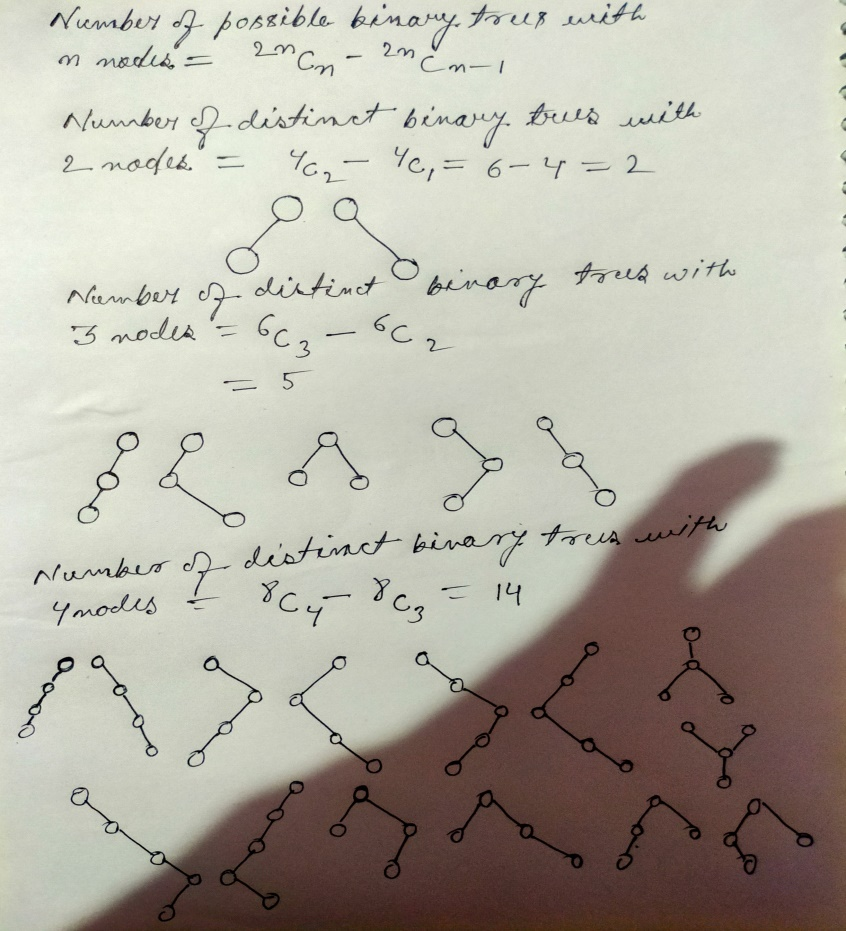 Number of possible binary trees with
n nodes = ²ⁿCₙ - ²ⁿCₙ₋₁
Number of distinct binary trees with
2 nodes = ⁴C₂ - ⁴C₁ = 6 - 4 = 2
Number of distinct binary trees with
3 nodes = ⁶C₃ - ⁶C₂
= 5
Number of distinct binary trees with
4 nodes = ⁸C₄ - ⁸C₃ = 14